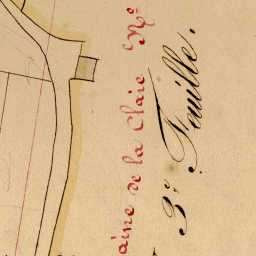 aine de la Claie N.º
3.e Feuille.